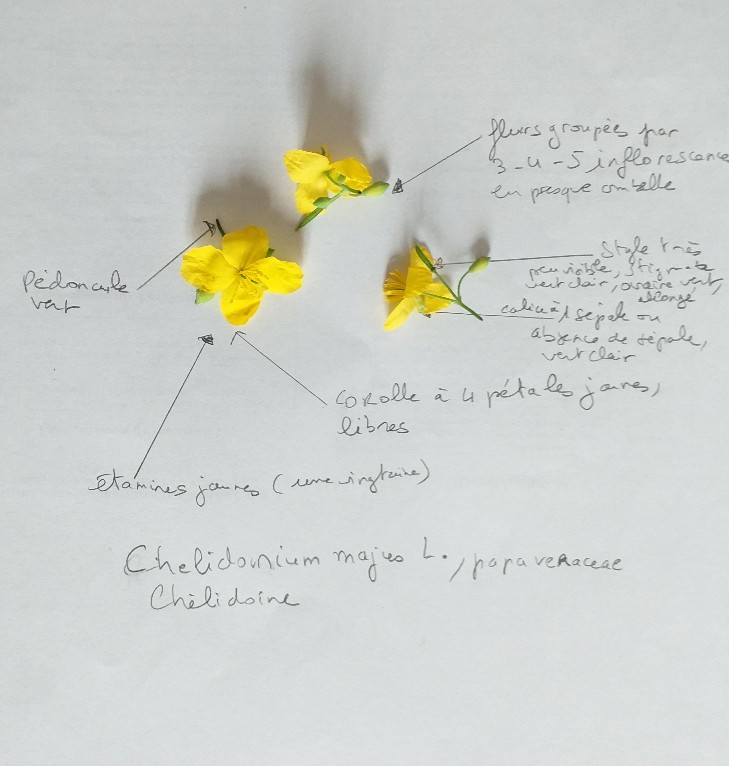 fleurs groupées par
3-4-5 inflorescence
en presque ombelle
Style très
peu visible, stigmate
vert clair, ovaire vert,
allongé
calice à 1 sépale ou
absence de sépale,
vert clair
Pédoncule
vert
corolle à 4 pétales jaunes,
libres
étamines jaunes (une vingtaine)
Chelidonium majus L., papaveraceae
Chélidoine